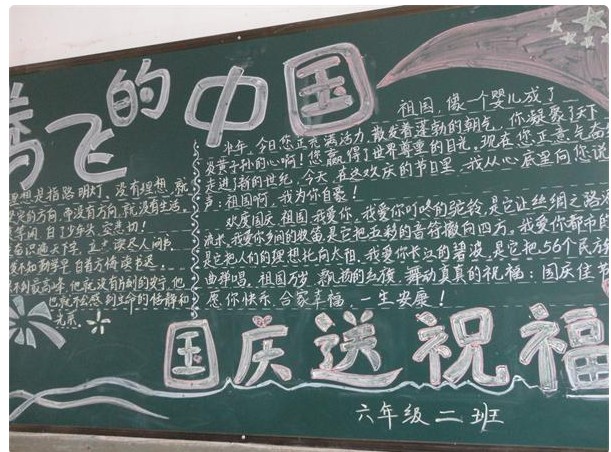 腾飞的中国
祖国 像一个婴儿成了
少年, 今日您正充满活力, 散发着蓬勃的朝气, 你凝聚了天下
炎黄子孙的心啊! 您赢得了世界尊重的目光, 现在您正意气高
走进了新的世纪, 今天, 在这欢庆的节日里, 我从心底里向您说
声: 祖国啊, 我为你自豪!
欢度国庆, 祖国我爱你, 我爱你叮咚的驼铃, 是它让丝绸之路永
流水, 我爱你乡间的牧笛, 是它把五彩的音符撒向四方, 我爱你都市的
是它把人们的理想托向太阳, 我爱你长江的碧波, 是它把56个民族
曲弹唱, 祖国万岁 飘扬的红旗 舞动真真的祝福: 国庆佳节
愿你快乐, 合家幸福, 一生安康!
理想是指路明灯, 没有理想, 就
坚定的方向, 而没有方向, 就没有生活,
等闲 白了少年头, 空悲切!
奋识遍天下字, 立志读尽人间书,
发不知勤学早, 白首方悔读书迟。
不到最高峰, 他就没有片刻的安宁, 他
也就不会感到生命的恬静和
光荣。
国庆送祝福
六年级二班